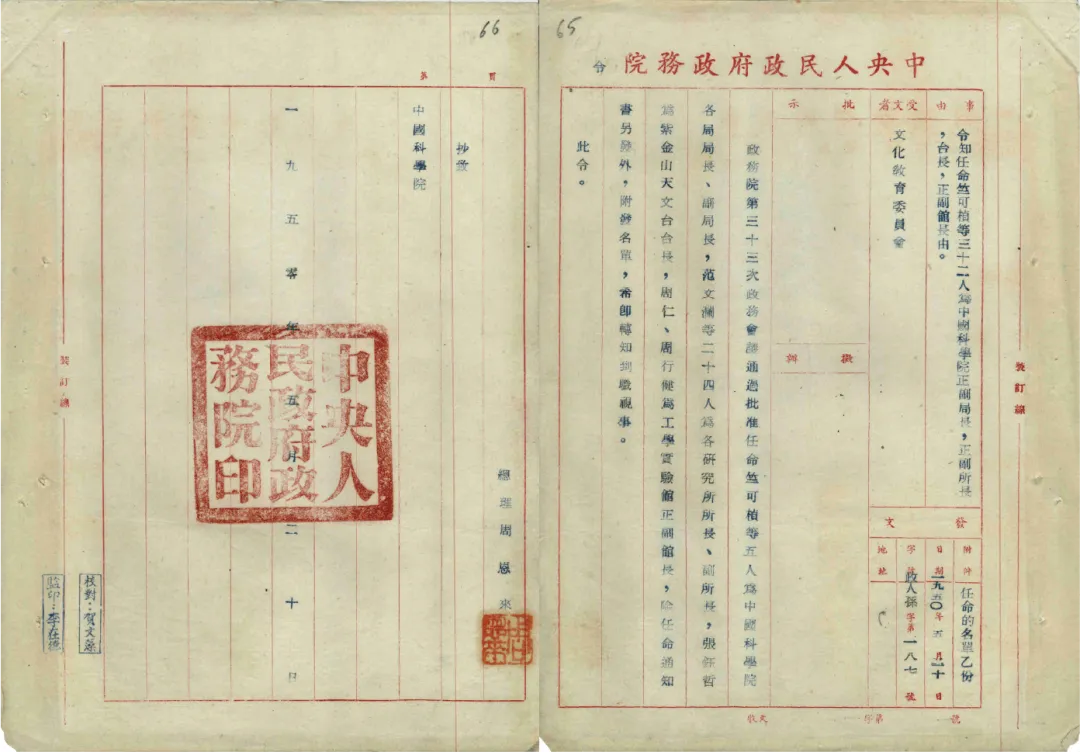 65
中央人民政府政務院
令
事由
令知任命竺可楨等三十二人爲中國科學院正副局長，正副所長
，台長，正副館長由。
受文者
文化教育委員會
批示
擬辦
發文
附件
任命的名單乙份
日期
一九五〇年五月二十日
字號
政人孫字第一八七號
地址
政務院第三十三次政務會議通過批准任命竺可楨等五人爲中國科學院
各局局長、副局長，范文瀾等二十四人爲各研究所所長、副所長，張鈺哲
爲紫金山天文台台長，周仁、周行健爲工學實驗館正副館長，除任命通知
書另發外，附發名單，希卽轉知到職視事。
此令。
收文 字第 號
裝訂線
66
第 頁
總理周恩來
抄致
中國科學院
一九五零年五月二十日
中央人民政府政務院印
校對：賀文
監印：李在德
裝訂線